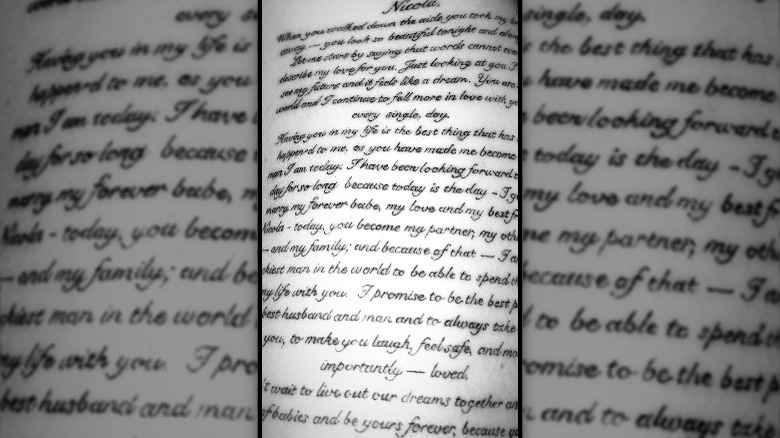 Nicola,
When you walked down the aisle you took my
away — you look so beautiful tonight and
Let me start by saying that words cannot
describe my love for you. Just looking at you I
see my future and it feels like a dream. You are
world and I continue to fall more in love with
every single, day.
Having you in my life is the best thing that has
happen'd to me, as you have made me become
man I am today. I have been looking forward
day for so long because today is the day - I
marry my forever babe, my love and my best
Nicola - today, you become my partner, my
— and my family; and because of that — I
man in the world to be able to spend
my life with you. I promise to be the best
best husband and man and to always take
you, to make you laugh, feel safe, and
importantly — loved.
wait to live out our dreams together
of babies and be yours forever, because